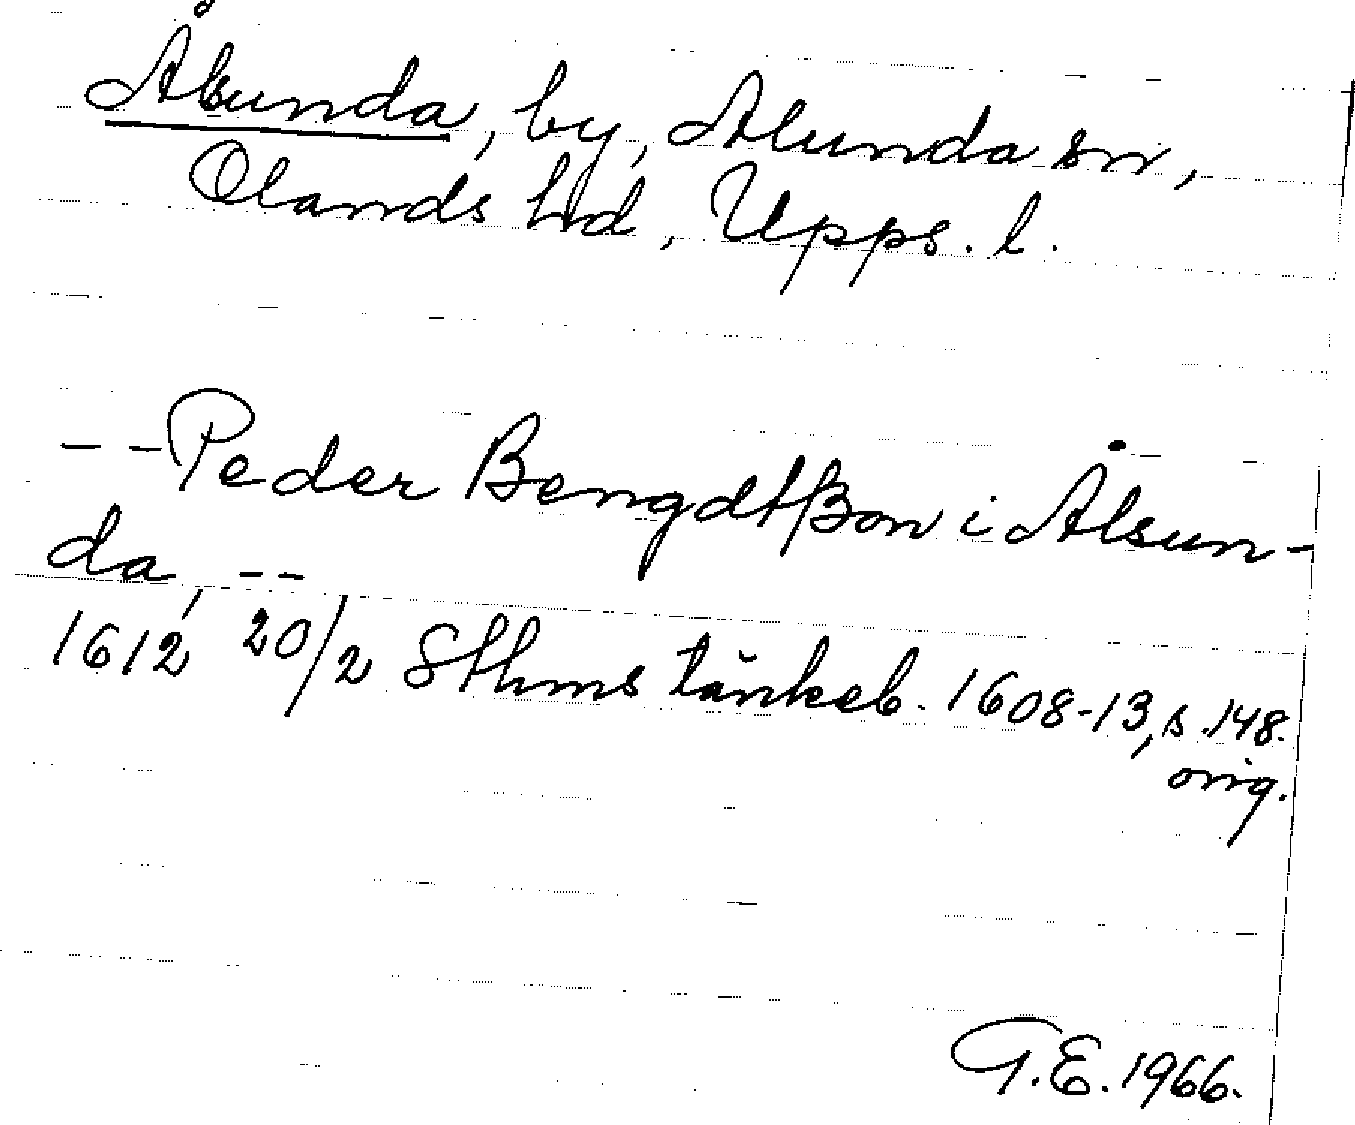 Ålsunda, by, Alunda sn,
Olands hd, Upps. l.
- - Peder Bengdtßon i Ålsun-
da, - -
1612 20/2 Sthms tänkeb. 1608-13, s. 148.
orig.
G.E. 1966.